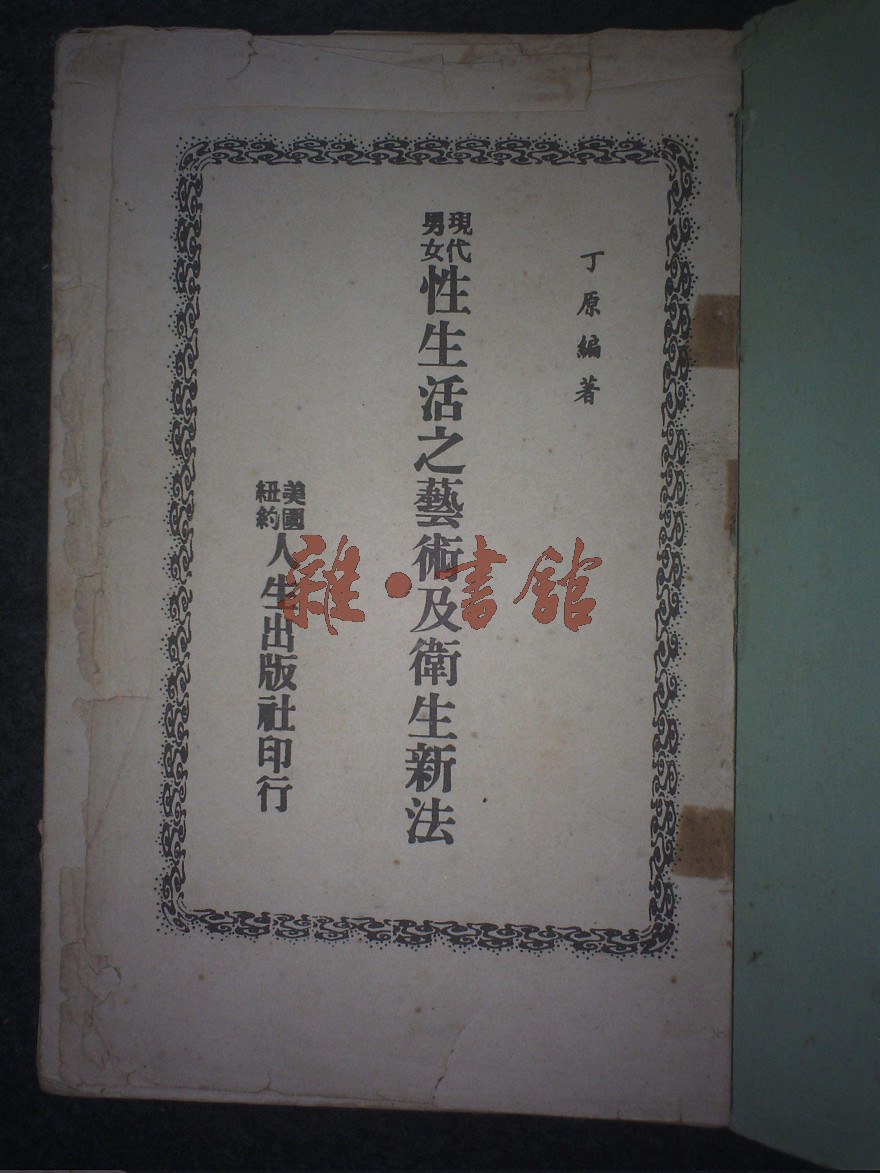 丁原編著
現代男女性生活之藝術及衛生新法
美國紐約人生出版社印行
雜·書館